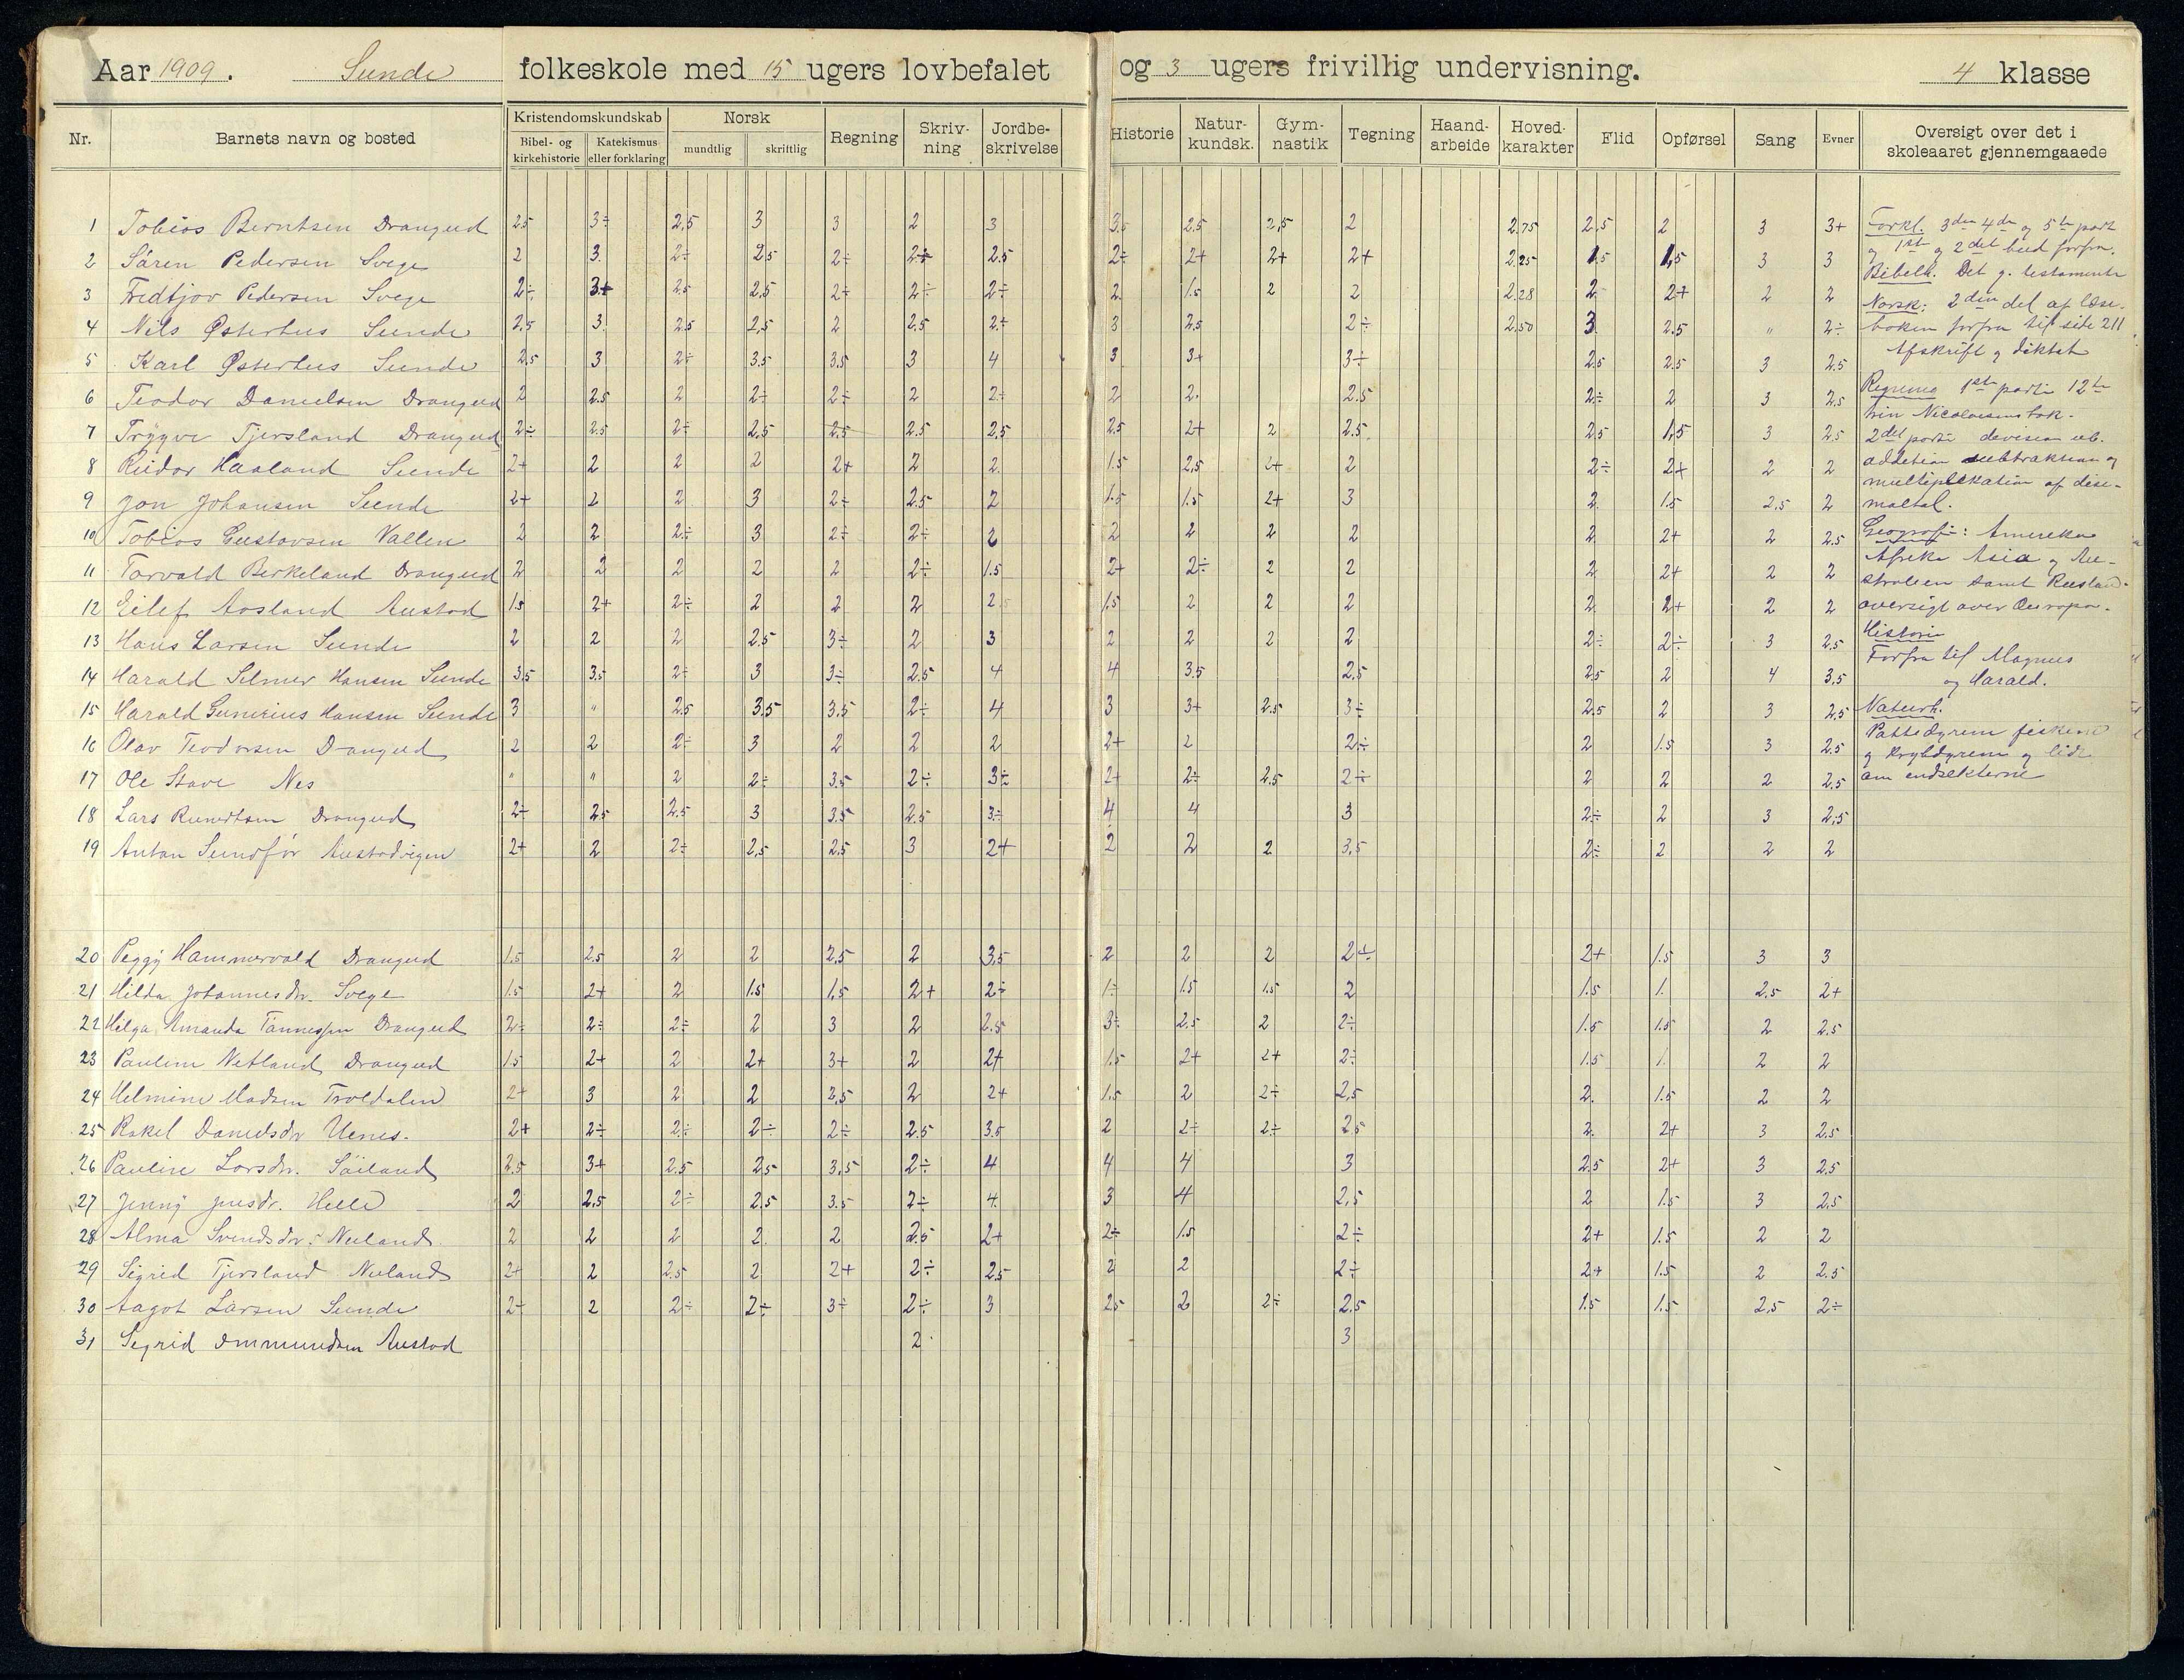 Aar 1909. Sunde folkeskole med 15 ugers lovbefalet og 3 ugers frivillig undervisning. 4 klasse
Nr. Barnets navn og bosted Kristendomskundskab Bibel- og kirkehistorie Katekismus eller forklaring Norsk mundtlig skriftlig Regning Skrivning Jordbeskrivelse Historie Naturkundsk. Gymnastik Tegning Haandarbeide Hovedkarakter Flid Opførsel Sang Evner Oversigt over det i skoleaaret gjennemgaaede
1 Tobias Berntsen Drangeid 2.5 3÷ 2,5 3 3 2 3 3,5 2.5 2,5 2 2.75 2,5 2 3 3+
2 Sören Pedersen Svege 2 3. 2÷ 2.5 2÷ 2÷ 2.5 2÷ 2+ 2+ 2+ 2.25 1.5 1,5 3 3
3 Fredtjov Pedersen Svege 2÷ 3+ 2.5 2,5 2÷ 2÷ 2÷ 2. 1.5 2 2 2.28 2. 2+ 2 2
4 Nils Østerhus Sunde 2.5 3. 2.5 2,5 2 2.5 2÷ 3 2.5 2÷ 2.50 3. 2.5 " 2÷
5 Karl Østerhus Sunde 2.5 3 2÷ 3.5 3.5 3 4 3 3+ 3÷ 2.5 2.5 3 2.5
6 Teodor Danielsen Drangeid 2 2.5 2 2÷ 2÷ 2 2÷ 2 2. 2.5 2÷ 2 3 2.5
7 Trygve Tjersland Drangeid 2÷ 2.5 2÷ 2,5 2.5 2.5 2,5 2.5 2+ 2 2.5 2.5 1,5 3 2.5
8 Reidar Haaland Sunde 2+ 2 2 2 2+ 2 2. 1.5 2,5 2+ 2 2÷ 2+ 2 2
9 Jon Johansen Sunde 2+ 2 2 3 2÷ 2.5 2 1.5 1.5 2+ 3 2. 1.5 2,5 2
10 Tobias Gustavsen Vallen 2 2 2÷ 3 2÷ 2÷ 2 2 2 2 2 2 2+ 2 2.5
11 Torvald Birkeland Drangeid 2 2 2 2 2 2÷ 1.5 2+ 2÷ 2 2 2 2+ 2 2
12 Eilef Aasland Austad 1.5 2+ 2÷ 2 2 2 2.5 1.5 2 2 2 2 2+ 2 2
13 Hans Larsen Sunde 2 2 2 2.5 3÷ 2 3 2 2 2 2 2÷ 2÷ 3 2.5
14 Harald Selmer Hansen Sunde 3.5 3.5 2÷ 3 3÷ 2.5 4 4 3.5 2.5 2.5 2 4 3.5
15 Harald Gunerius Hansen Sunde 3 " 2.5 3.5 3.5 2÷ 4 3 3+ 2.5 3÷ 2.5 2 3 2.5
16 Olav Teodorsen Drangeid 2 2 2÷ 3 2 2 2 2+ 2 2÷ 2 1.5 3 2.5
17 Ole Stave Nes " " 2 2÷ 3.5 2÷ 3÷ 2+ 2÷ 2.5 2÷ 2 2 2 2.5
18 Lars Drangeid 2÷ 2.5 2.5 3 3.5 2.5 3÷ 4 4 3 2÷ 2 3 2.5
19 Anton Sundför Austadvigen 2+ 2 2÷ 2,5 2.5 3 2+ 2 2 2 3,5 2÷ 2 2 2
20 Peggy Hammervold Drangeid 1.5 2.5 2 2 2,5 2 3.5 2 2 2 2÷ 2+ 1.5 3 3
21 Hilda Johannesdr. Svege 1.5 2+ 2 1.5 1,5 2+ 2÷ 1÷ 1.5 1.5 2 1.5 1. 2.5 2+
22 Helga Amanda Tønnessen Drangeid 2÷ 2÷ 2÷ 2 3 2 2.5 3÷ 2.5 2 2÷ 1.5 1.5 2 2.5
23 Pauline Netland Drangeid 1.5 2+ 2 2+ 3+ 2 2+ 1.5 2+ 2+ 2÷ 1.5 1. 2 2
24 Helmine Madsen Troldalen 2+ 3 2 2 2,5 2 2+ 1.5 2 2÷ 2,5 2. 1.5 2 2
25 Rakel Danielsdr Uenes. 2+ 2÷ 2÷ 2÷ 2÷ 2.5 3.5 2 2÷ 2÷ 2.5 2. 2+ 3 2.5
26 Pauline Larsdr. Söiland 2.5 3+ 2.5 2.5 3,5 2÷ 4 4 4 3 2.5 2+ 3 2.5
27 Jenny Jensdr. Helle 2 2,5 2÷ 2.5 3.5 2÷ 4. 3 4 2,5 2 1.5 3 2.5
28 Alma Svendsdr. Neuland. 2 2 2 2. 2 2.5 2+ 2÷ 1.5 2÷ 2+ 1.5 2 2
29 Sigrid Tjersland Neuland 2+ 2 2.5 2 2+ 2÷ 2.5 2 2 2÷ 2+ 1.5 2 2.5
30 Aagot Larsen Sunde 2÷ 2 2÷ 2÷ 3÷ 2÷ 3 2.5 2 2÷ 2.5 1.5 1.5 2,5 2÷
31 Sigrid Ommundsen Austad 2. 3
Forkl. 3die 4de og 5te part
og 1ste og 2det bud forfra.
Bibelh. Det g. testamente
Norsk: 2den del af læse-
boken forfra til side 211
Afskrift og diktat
Regning 1ste parti 12te
trin Nicolaisens bok.
2det parti
addition subtraktion og
multiplikation af desi-
maltal.
Geografi: Amerika
Afrika Asia og Au-
stralien samt Rusland.
oversigt over Europa.
Historie
Forfra til Magnus
og Harald.
Naturh.
Pattedyrene fiskene
og krybdyrene og lidt
om indsekterne